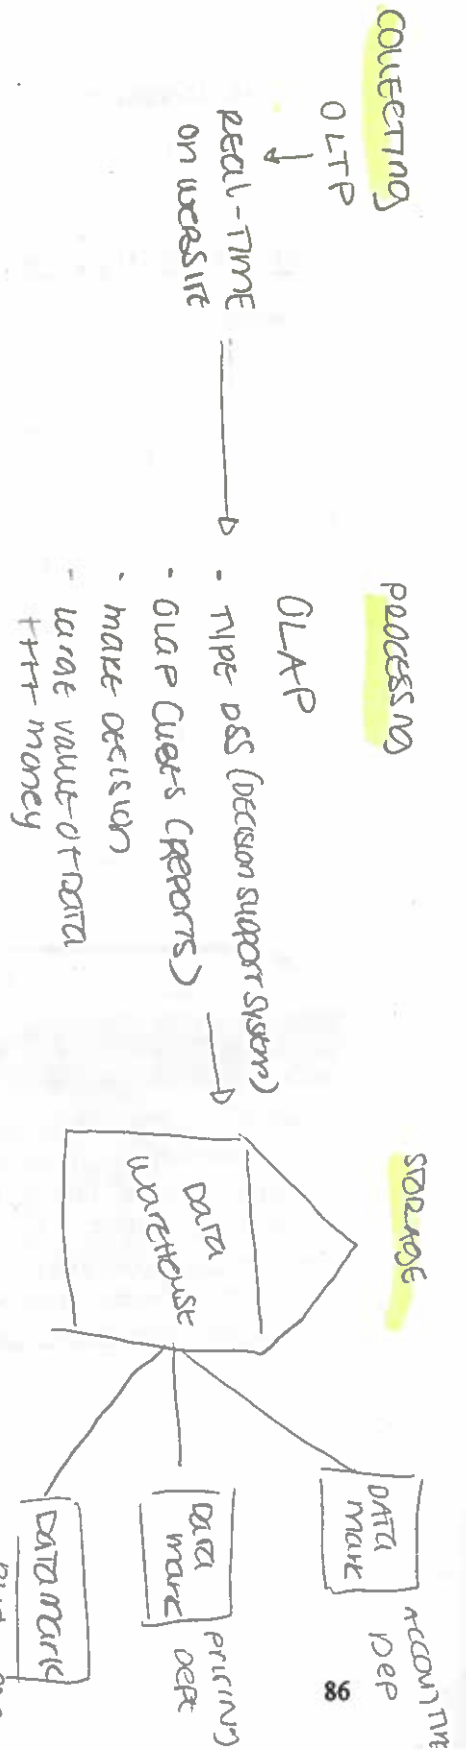 COLLECTING
OLTP
REAL-TIME
ON WEBSITE
PROCESSING
OLAP
· TYPE DSS (DECISION SUPPORT SYSTEM)
· OLAP CUBES (REPORTS)
· MAKE DECISION
· LARGE VALUE OF DATA
++++ MONEY
STORAGE
DATA
WAREHOUSE
DATA
MART
ACCOUNTING
DEP
DATA
MART
PRICING
DEPT
DATA MART
86